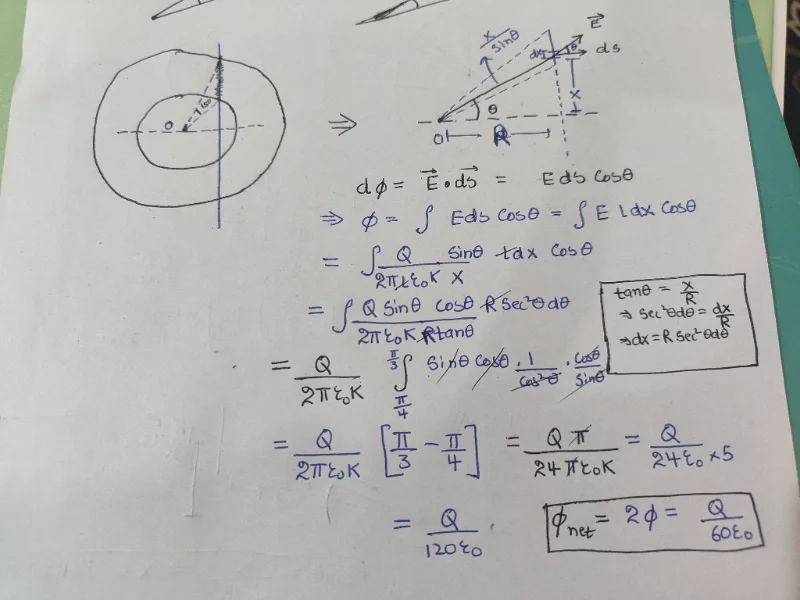 x/sinθ
E⃗
dx
θ
ds
x
θ
O
R
O
⇒
dϕ = E⃗ • ds⃗ = E ds cosθ
⇒ ϕ = ∫ E ds cosθ = ∫ E l dx cosθ
= ∫ Q/2πlε₀K sinθ/x l dx cosθ
= ∫ Q sinθ cosθ R sec²θ dθ/2πε₀K R tanθ
tanθ = x/R
⇒ sec²θ dθ = dx/R
⇒ dx = R sec²θ dθ
= Q/2πε₀K ∫ π/4 π/3 sinθ cosθ · 1/cos²θ · cosθ/sinθ
= Q/2πε₀K [π/3 - π/4] = Qπ/24πε₀K = Q/24ε₀×5
= Q/120ε₀
ϕnet = 2ϕ = Q/60ε₀